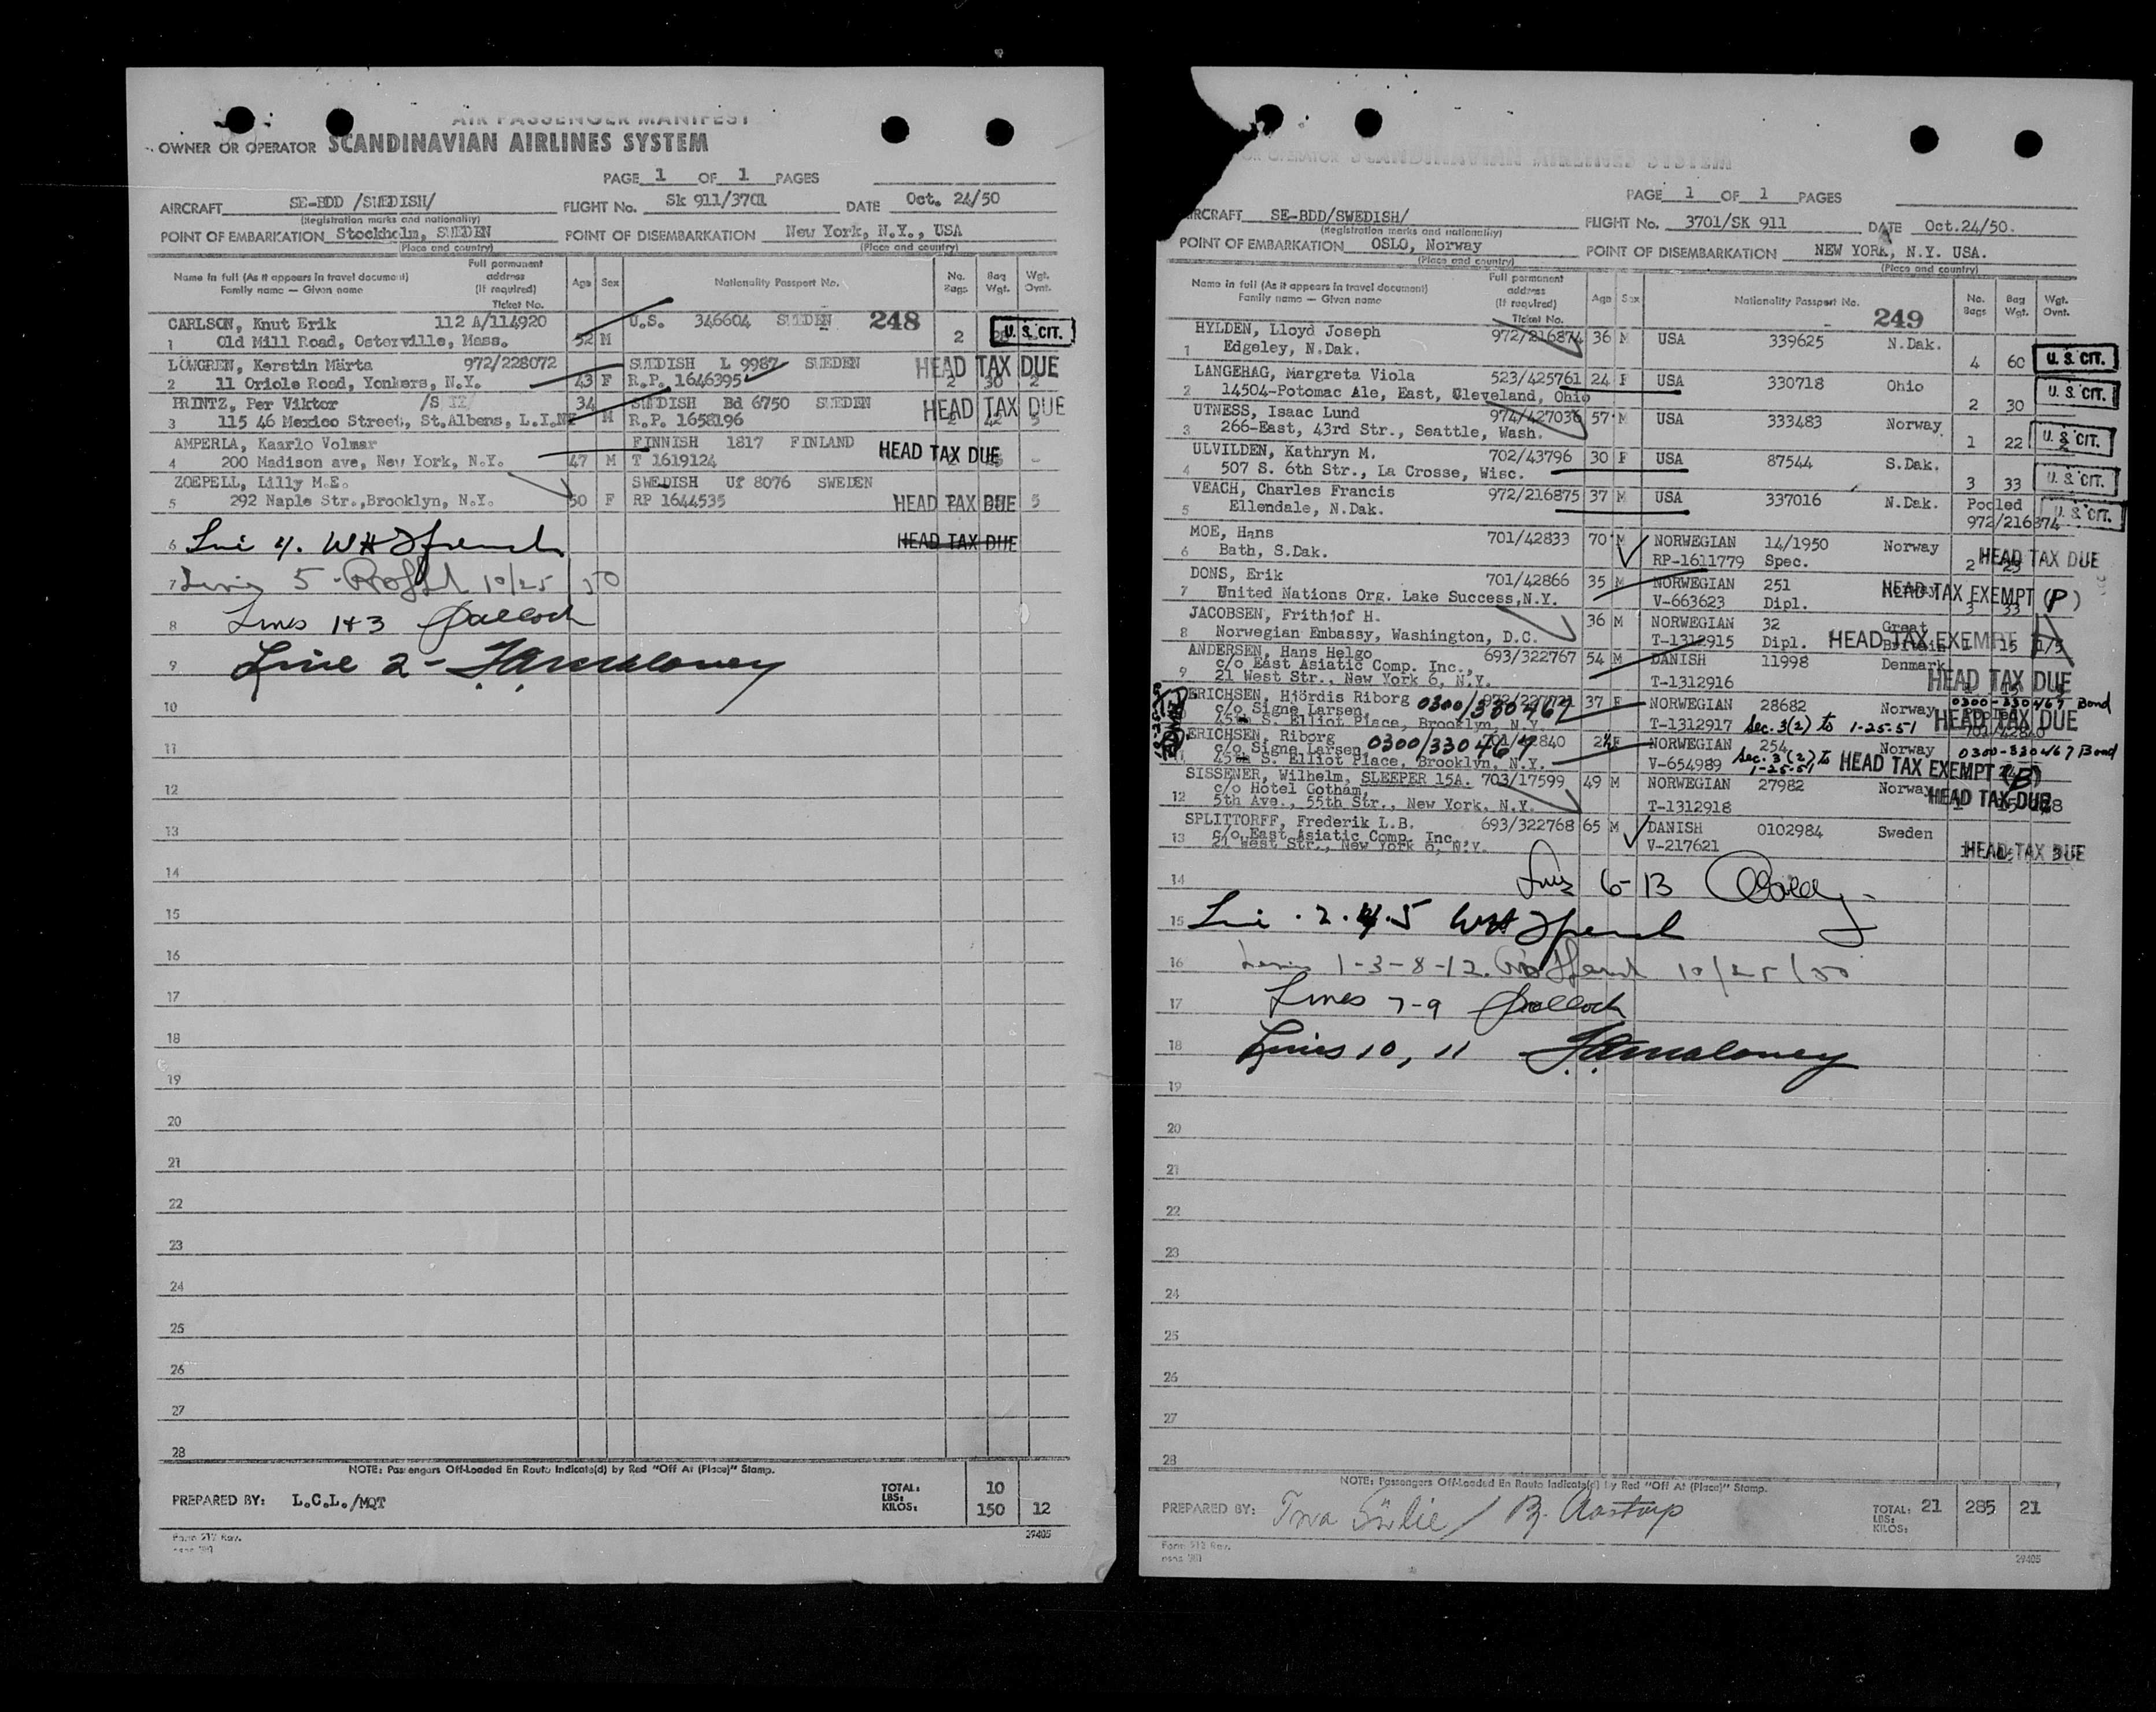 AIR PASSENGER MANIFEST
OWNER OR OPERATOR SCANDINAVIAN AIRLINES SYSTEM
PAGE 1 OF 1 PAGES
AIRCRAFT SE-BDD /SWEDISH/ FLIGHT No. Sk 911/3701 DATE Oct. 24/50
(Registration marks and nationality)
POINT OF EMBARKATION Stockholm, SWEDEN POINT OF DISEMBARKATION New York, N.Y., USA
(Place and country) (Place and country)
Name in full (As it appears in travel document) Family name — Given name Full permanent address (If required) Ticket No. Age Sex Nationality Passport No. No. Bags Bag Wgt. Wgt. Ovnt.
CARLSON, Knut Erik 112 A/114920 U.S. 346604 SWEDEN 248
1 Old Mill Road, Osterville, Mass. 52 M 2 U. S. CIT.
LÖWGREN, Kerstin Märta 972/228072 SWEDISH L 9987 SWEDEN HEAD TAX DUE
2 11 Oriole Road, Yonkers, N.Y. 43 F R.P. 1646395 2 30 2
PRINTZ, Per Viktor /S 34 SWEDISH Bd 6750 SWEDEN HEAD TAX DUE
3 115 46 Mexico Street, St.Albens, L.I.NY M R.P. 1658196 2 42 5
AMPERLA, Kaarlo Volmar FINNISH 1817 FINLAND
4 200 Madison ave, New York, N.Y. 47 M T 1619124 HEAD TAX DUE -
ZOEPELL, Lilly M.E. SWEDISH Uf 8076 SWEDEN
5 292 Naple Str.,Brooklyn, N.Y. 50 F RP 1644535 HEAD TAX DUE 5
6 Line 4. WH French HEAD TAX DUE
7 Lines 5 10/25/50
8 Lines 1+3 Pollock
9 Line 2 - Maloney
10
11
12
13
14
15
16
17
18
19
20
21
22
23
24
25
26
27
28
NOTE: Passengers Off-Loaded En Route Indicate(d) by Red "Off At (Place)" Stamp.
PREPARED BY: L.C.L./MQT TOTAL: LBS: KILOS: 10 150 12
Form 912 Rev. 29405
PAGE 1 OF 1 PAGES
AIRCRAFT SE-BDD/SWEDISH/ FLIGHT No. 3701/SK 911 DATE Oct.24/50.
(Registration marks and nationality)
POINT OF EMBARKATION OSLO, Norway POINT OF DISEMBARKATION NEW YORK, N.Y. USA.
(Place and country) (Place and country)
Name in full (As it appears in travel document) Family name — Given name Full permanent address (If required) Ticket No. Age Sex Nationality Passport No. 249 No. Bags Bag Wgt. Wgt. Ovnt.
HYLDEN, Lloyd Joseph 972/216874 36 M USA 339625 N.Dak.
1 Edgeley, N.Dak. 4 60 U. S. CIT.
LANGEHAG, Margreta Viola 523/425761 24 F USA 330718 Ohio
2 14504-Potomac Ale, East, Cleveland, Ohio 2 30 U. S. CIT.
UTNESS, Isaac Lund 974/427036 57 M USA 333483 Norway
3 266-East, 43rd Str., Seattle, Wash. 1 22 U. S. CIT.
ULVILDEN, Kathryn M. 702/43796 30 F USA 87544 S.Dak.
4 507 S. 6th Str., La Crosse, Wisc. 3 33 U. S. CIT.
VEACH, Charles Francis 972/216875 37 M USA 337016 N.Dak. Pooled
5 Ellendale, N.Dak. 972/216874 U. S. CIT.
MOE, Hans 701/42833 70 M NORWEGIAN 14/1950 Norway
6 Bath, S.Dak. RP-1611779 Spec. 2 HEAD TAX DUE
DONS, Erik 701/42866 35 M NORWEGIAN 251
7 United Nations Org. Lake Success,N.Y. V-663623 Dipl. HEAD TAX EXEMPT (P) 3 33
JACOBSEN, Frithjof H. 36 M NORWEGIAN 32 Great
8 Norwegian Embassy, Washington, D.C. T-1312915 Dipl. Britain HEAD TAX EXEMPT 1 15
ANDERSEN, Hans Helgo 693/322767 54 M DANISH 11998 Denmark
c/o East Asiatic Comp. Inc.,
9 21 West Str., New York 6, N.Y. T-1312916 HEAD TAX DUE
ERICHSEN, Hjördis Riborg 972/227721 37 F NORWEGIAN 28682 Norway 0300-330467 Bond
c/o Signe Larsen, 0300/330467
45th S. Elliot Place, Brooklyn, N.Y. T-1312917 Sec. 3(2) to 1-25-51 HEAD TAX DUE
ERICHSEN, Riborg 701/42840 2½ F NORWEGIAN 254 Norway 701/42840
c/o Signe Larsen 0300/330467 0300-330467 Bond
45th S. Elliot Place, Brooklyn, N.Y. V-654989 Sec. 3(2) to 1-25-51 HEAD TAX EXEMPT (B)
SISSENER, Wilhelm, SLEEPER 15A. 703/17599 49 M NORWEGIAN 27982 Norway
c/o Hotel Gotham,
12 5th Ave., 55th Str., New York, N.Y. T-1312918 HEAD TAX DUE
SPLITTORFF, Frederik L.B. 693/322768 65 M DANISH 0102984 Sweden
c/o East Asiatic Comp. Inc.
13 21 West Str., New York 6, N.Y. V-217621 HEAD TAX DUE
14 Lines 6-13
15 Line . 2. 4. 5 WH French
16 Lines 1-3-8-12. 10/25/50
17 Lines 7-9 Pollock
18 Lines 10, 11 Maloney
19
20
21
22
23
24
25
26
27
28
NOTE: Passengers Off-Loaded En Route Indicate(d) by Red "Off At (Place)" Stamp.
PREPARED BY: TOTAL: LBS: KILOS: 21 285 21
Form 912 Rev. 29405